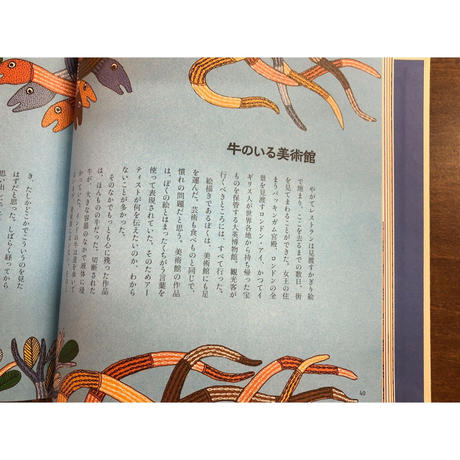 牛のいる美術館
やがてレストランは見渡すかぎり絵
で埋まり、ここを去るまでの数日、街
を見てまわることができた。女王の住
まうバッキンガム宮殿、ロンドンの全
景を見渡すロンドン・アイ、かつてイ
ギリス人が世界各地から持ち帰った宝
ものを保管する大英博物館。観光客が
行くべきところには、すべて行った。
絵描きであるぼくは、美術館にも足
を運んだ。芸術も食べものと同じで、
慣れの問題だと思う。美術館の作品
は、ぼくの絵とはまったくちがう言葉を
使って表現されていた。そのためアー
ティストが何を伝えたいのか、わから
ないことが多かった。
そのなかでもっとも心に残った作品
は、ほんものの牛だった。切断された
牛が、大きな容器のなかで液体に浸
かっていた。
き、たしかどこかでこういうのを見た
はずだと思った。しばらく経ってから
思い出し
40